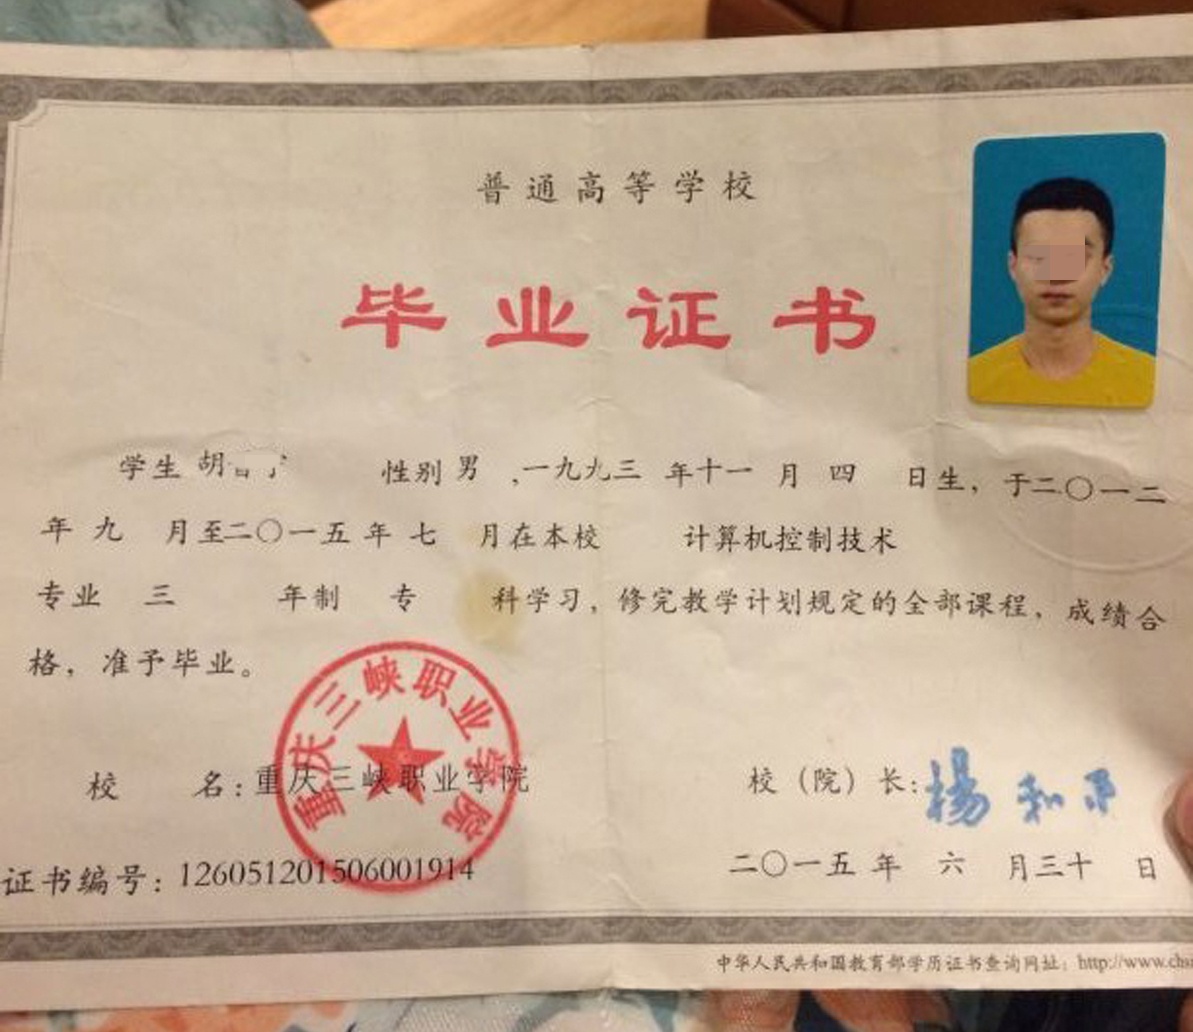 普通高等学校
毕业证书
学生 胡 性别 男 ,一九九三 年十一 月 四 日生，于二〇一二
年 九 月至二〇一五 年 七 月在本校 计算机控制技术
专业 三 年制 专 科学习，修完教学计划规定的全部课程，成绩合
格，准予毕业。
重庆三峡职业学院
校 名：重庆三峡职业学院
校（院）长：楊和平
证书编号：126051201506001914
二〇一五 年 六 月三十 日
中华人民共和国教育部学历证书查询网址：http://www.chsi